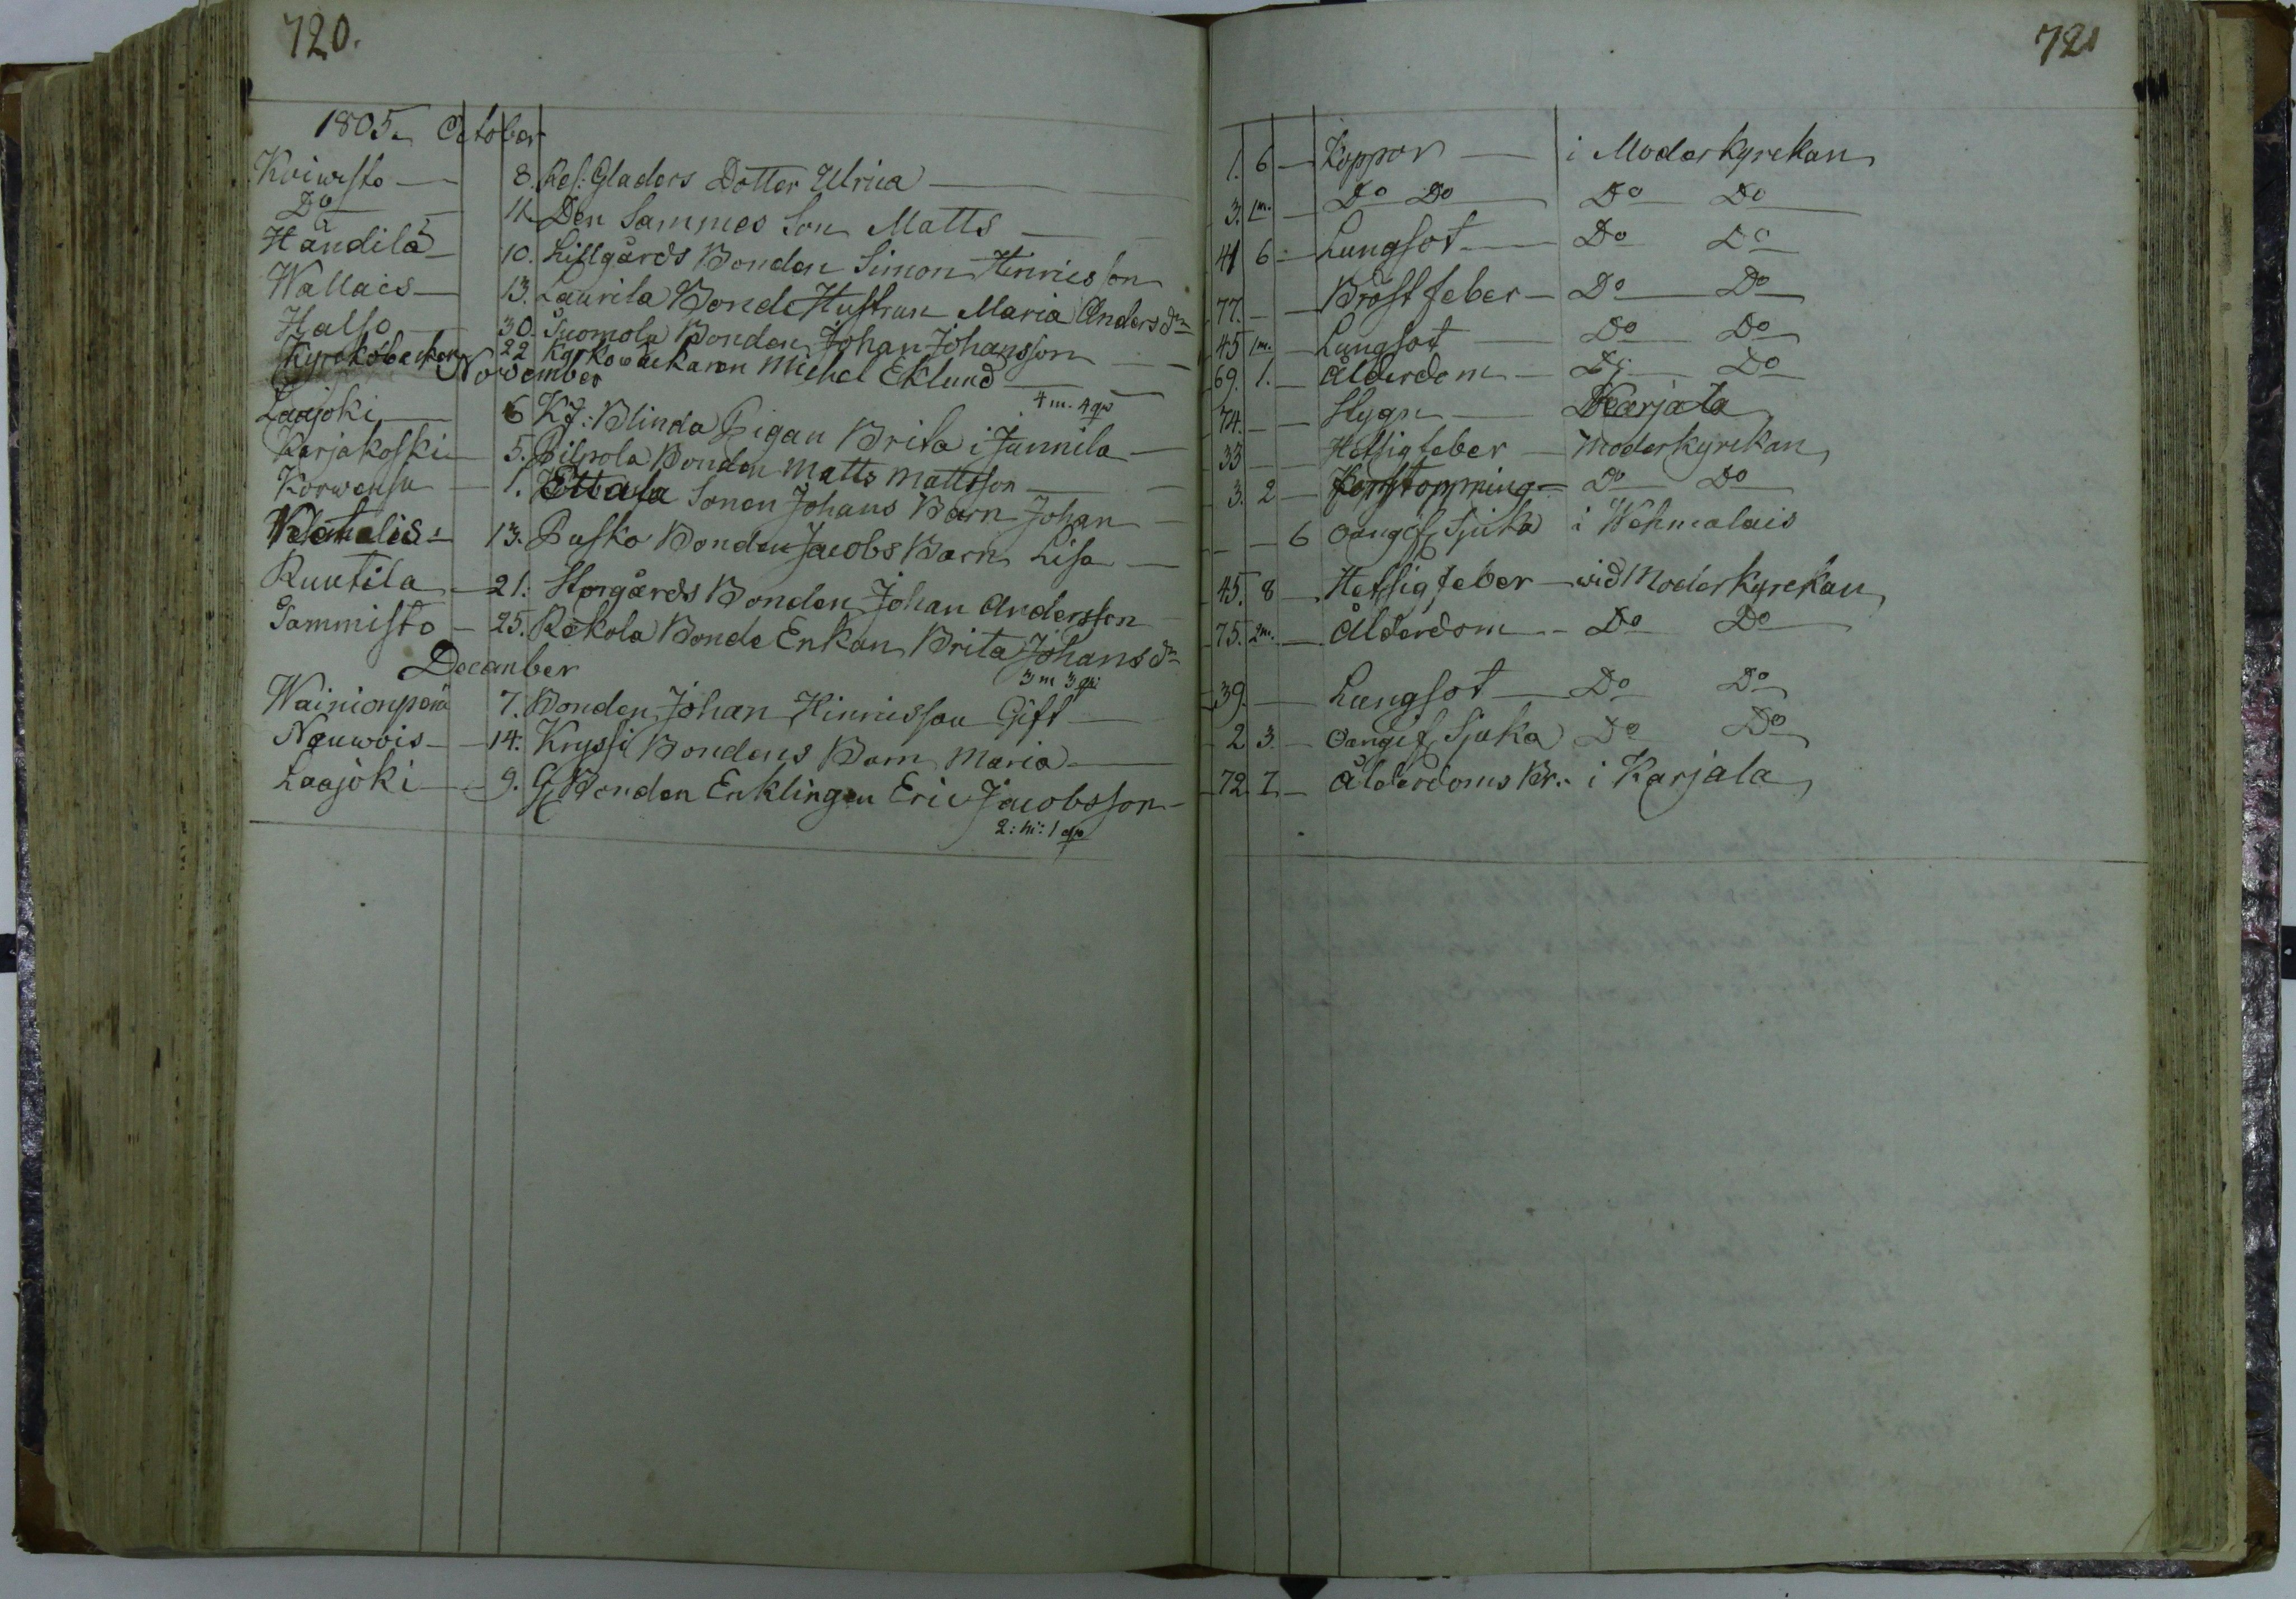 720.
1805. October
Koiwisto — 8. Ref: Gladers Dotter Ulrica —
Do — 11. Den Sammes Son Matts —
Händilä — 10. Lillgårds Bonden Simon Hinricsson
Wallais — 13. Laurila Bonde Hustrun Maria Andersdr
Halso — 30. Suomola Bonden Johan Johansson —
Kyrckobacken 22 Kyrkowäcktaren Michel Eklund —
November 4 m. 4 qv
Laajoki — 6 Kf: Blinda Pigan Brita i Junnila —
Karjakoski — 5. Pilpola Bonden Matts Mattsson —
Korwensu — 1. Sonen Johans Barn Johan —
13. Pusko Bonden Jacobs Barn Lisa —
Ruutila — 21. Storgårds Bonden Johan Andersson
Tammisto — 25. Rekola Bonde Enkan Brita Johansdr
December 3 m 3 qv:
Wainionpää 7. Bonden Johan Hinricsson Gift —
Nauwois — 14. Kryssi Bondens Barn Maria —
Laajoki — 9. Bonden Enklingen Eric Jacobsson —
2: m: 1 qv
721
1. 6 — Koppor — i Moderkyrckan
3. 1m. — Do Do — Do Do
41 6 — Lungsot — Do Do
77. — — Bröstfeber — Do Do
45 1m. — Lungsot — Do Do
69. 1. — Ålderdom — Do Do
74. — — Stygn — Karjala
33 — — Hetsigfeber — Moderkyrckan
3. 2 — Förstoppning — Do Do
— — 6 Oangif. Sjuka i Wehmalais
45. 8 — Hetsigfeber — wid Moderkyrckan
75. 2m. — Ålderdom — Do Do
39. — Lungsot — Do Do
2 3. — Oangif. Sjuka Do Do
72 7. — Ålderdoms Br. — i Karjala